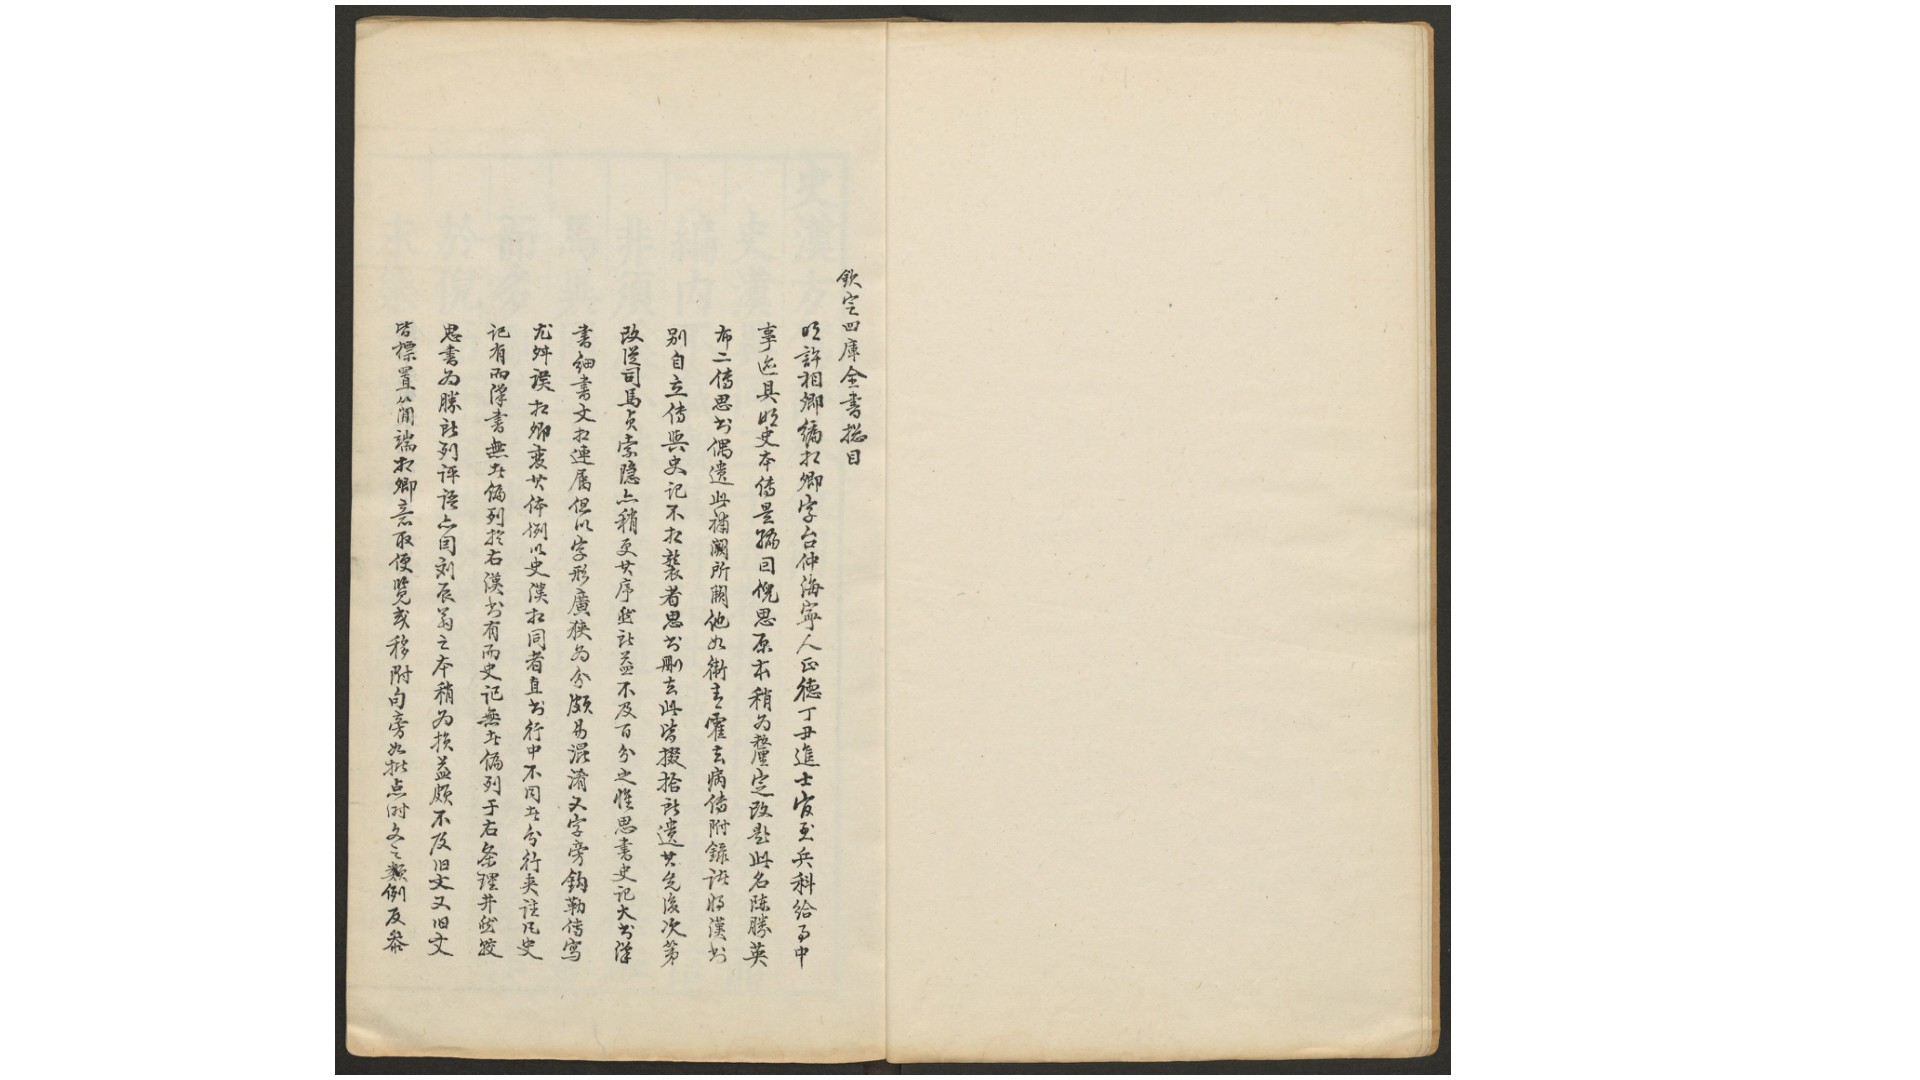 欽定四庫全書總目
明許相卿編相卿字台仲海寧人正德丁丑進士官至兵科給事中
事迹具明史本傳是編因倪思原本稍為釐定改題此名陳勝英
布二傳思書偶遺此補闕所闕他如衛青霍去病傳附錄諸將漢書
別自立傳與史記不相襲者思書刪去此皆掇拾所遺其先後次第
改從司馬貞索隱亦稍更其序然所益不及百分之惟思書史記大書漢
書細書文相連屬但以字形廣狹為分頗易混淆又字旁鈎勒傳寫
尤舛誤相卿變其体例以史漢相同者直書行中不同者分行夾註凡史
記有而漢書無者偏列於右漢書有而史記無者偏列于右条理井然較
思書為勝所列評語亦因刘辰翁之本稍為損益頗不及旧文又旧文
皆標置簡端相卿意取便覽或移附句旁如批点時文之類例反叅
史漢方
史漢
編內
非須
馬與
而多
於倪